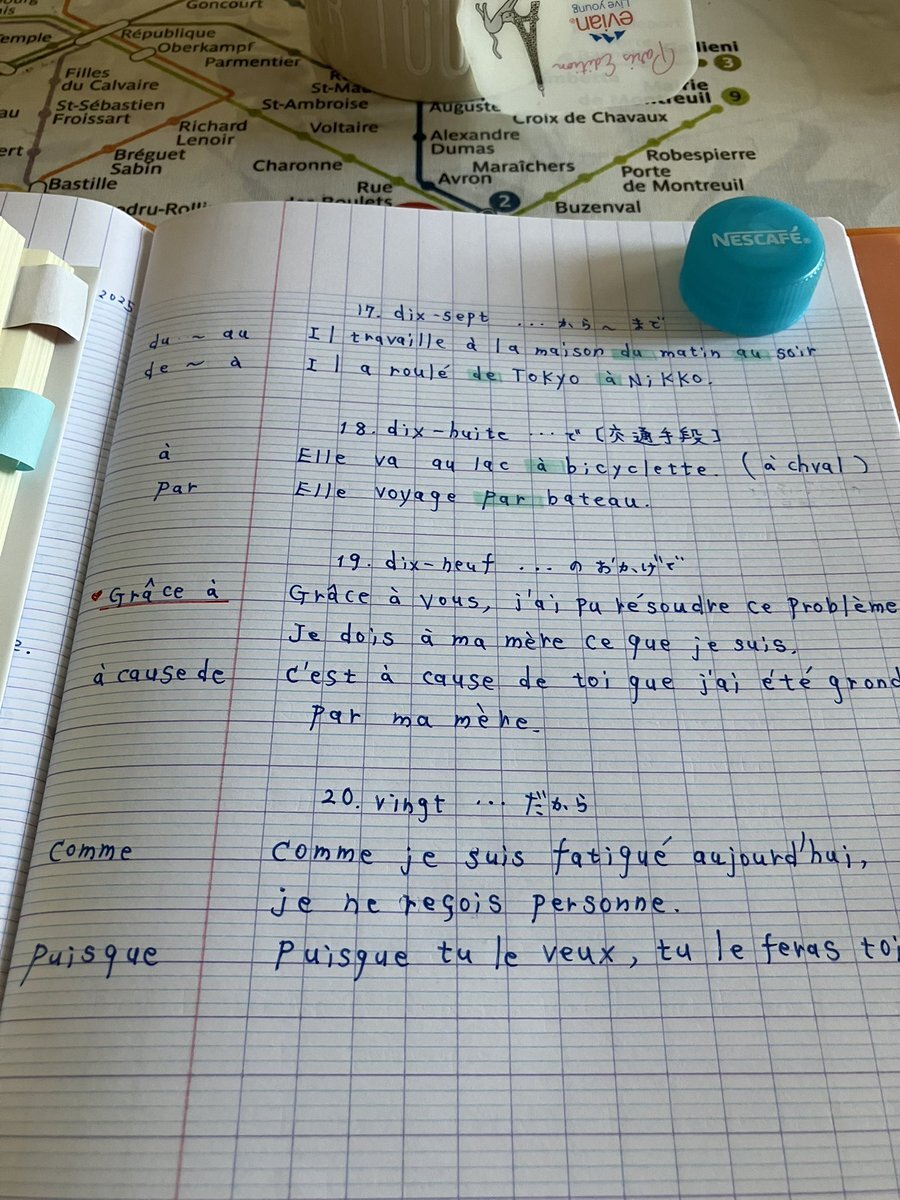 Goncourt
Temple
République
Oberkampf
Parmentier
Filles
du Calvaire
St-Sébastien
Froissart
St-Ambroise
Richard
Lenoir
Voltaire
Bréguet
Sabin
Charonne
Bastille
Rue
Auguste
Alexandre
Dumas
Avron
2
Maraîchers
Buzenval
Croix de Chavaux
Robespierre
Porte
de Montreuil
3
9
evian
Live young
Paris Edition
NESCAFÉ
2025
17. dix-sept ... から〜まで
du 〜 au Il travaille à la maison du matin au soir
de 〜 à Il a roulé de TOKYO à NiKKO.
18. dix-huite ... で〔交通手段〕
à Elle va au lac à bicyclette. (à chval)
par Elle voyage par bateau.
19. dix-neuf ... のおかげで
Grâce à Grâce à vous, j'ai pu résoudre ce problème
Je dois à ma mère ce que je suis.
à cause de c'est à cause de toi que j'ai été grond
par ma mène.
20. vingt ... だから
Comme Comme je suis fatigué aujourd'hui,
je ne reçois personne.
Puisque Puisque tu le veux, tu le feras toi